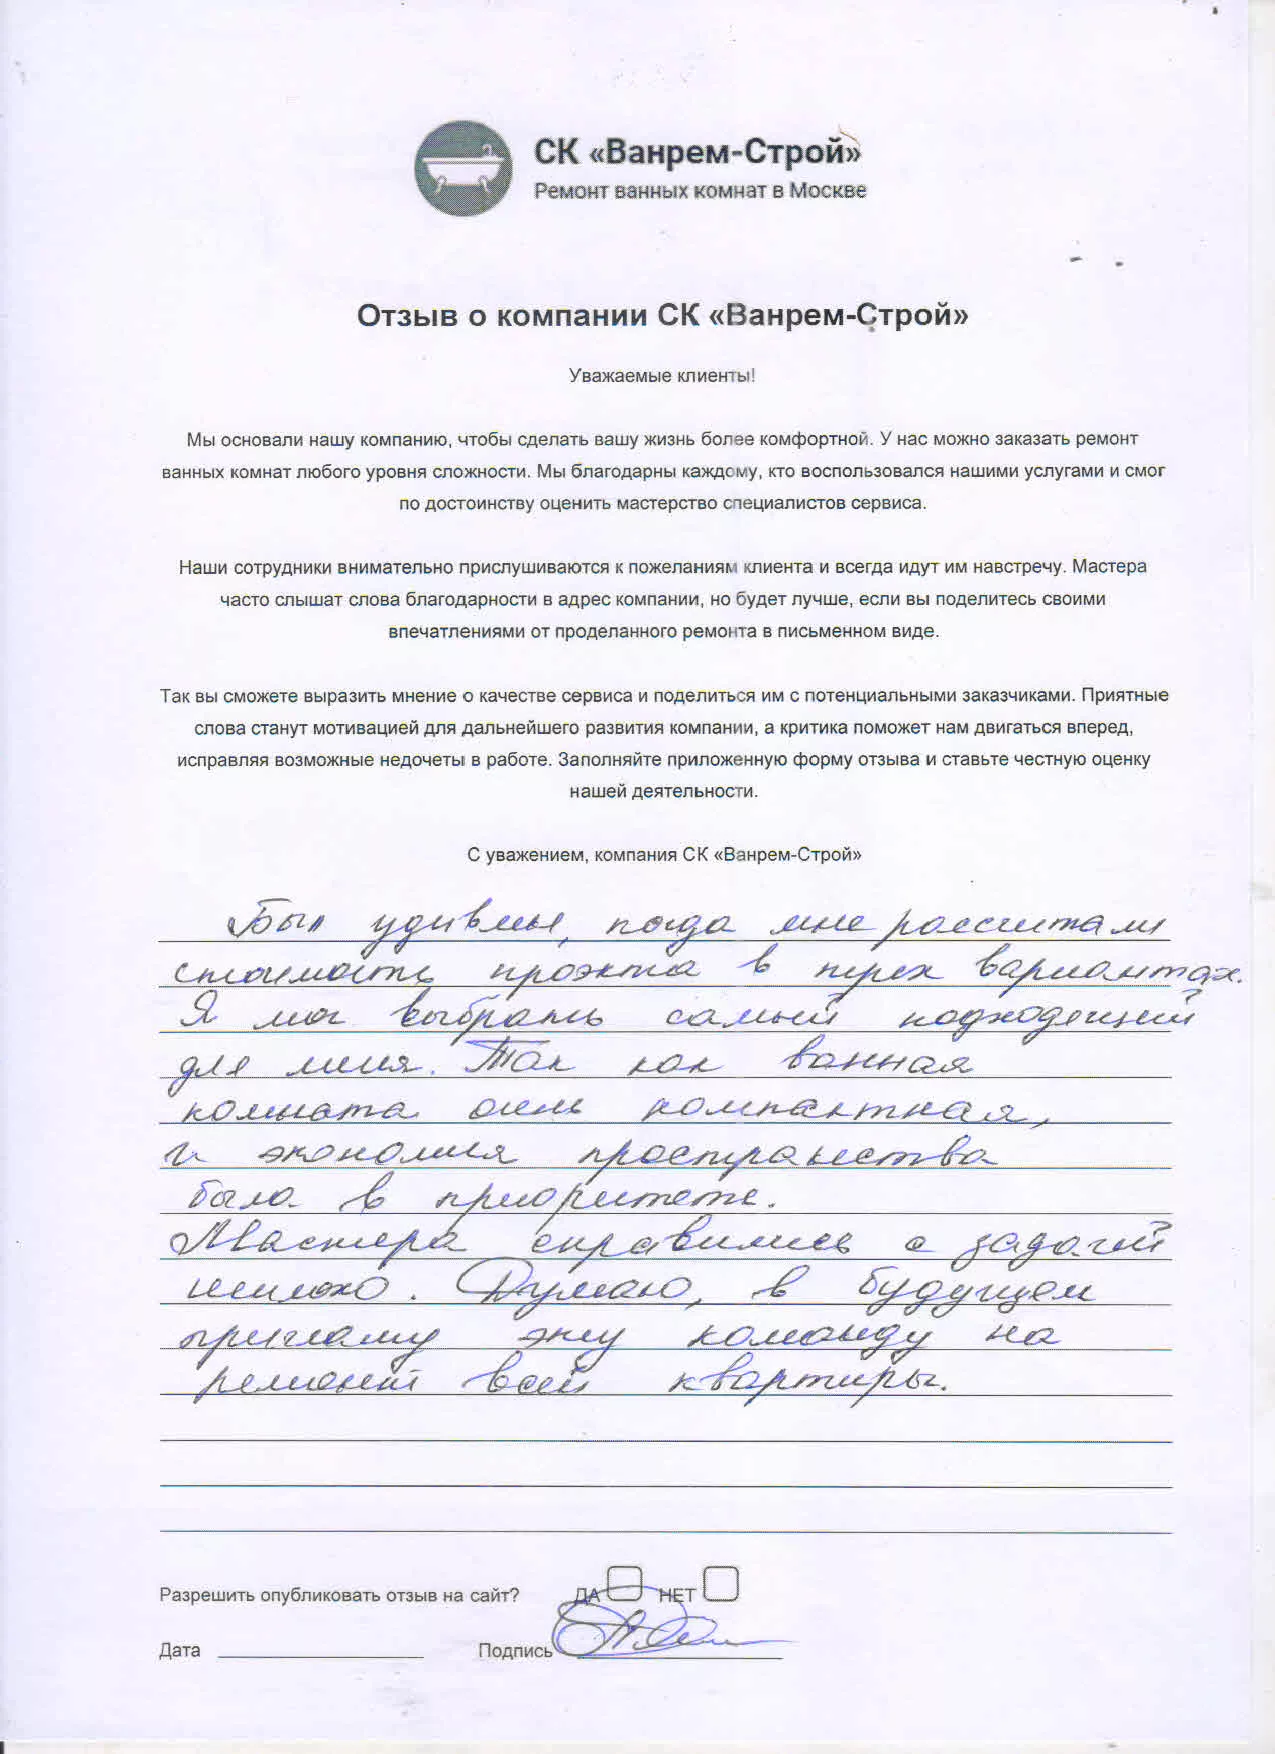 СК «Ванрем-Строй»
Ремонт ванных комнат в Москве
Отзыв о компании СК «Ванрем-Строй»
Уважаемые клиенты!
Мы основали нашу компанию, чтобы сделать вашу жизнь более комфортной. У нас можно заказать ремонт
ванных комнат любого уровня сложности. Мы благодарны каждому, кто воспользовался нашими услугами и смог
по достоинству оценить мастерство специалистов сервиса.
Наши сотрудники внимательно прислушиваются к пожеланиям клиента и всегда идут им навстречу. Мастера
часто слышат слова благодарности в адрес компании, но будет лучше, если вы поделитесь своими
впечатлениями от проделанного ремонта в письменном виде.
Так вы сможете выразить мнение о качестве сервиса и поделиться им с потенциальными заказчиками. Приятные
слова станут мотивацией для дальнейшего развития компании, а критика поможет нам двигаться вперед,
исправляя возможные недочеты в работе. Заполняйте приложенную форму отзыва и ставьте честную оценку
нашей деятельности.
С уважением, компания СК «Ванрем-Строй»
Был удивлен, когда мне рассчитали
стоимость проэкта в трех вариантах.
Я мог выбрать самый подходящий
для меня. Так как ванная
комната очень компактная,
и экономия пространства
была в приоритете.
Мастера справились с задачей
неплохо. Думаю, в будущем
приглашу эту команду на
ремонт всей квартиры.
Разрешить опубликовать отзыв на сайт? ДА НЕТ
Дата Подпись